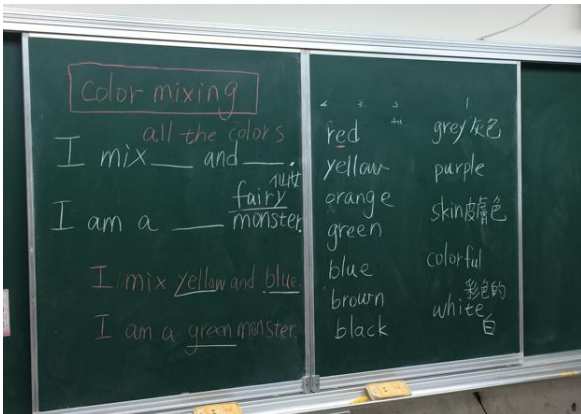 color mixing
all the colors
I mix ___ and ___.
仙女
fairy
I am a ___ monster.
I mix yellow and blue.
I am a green monster.
4. 3. 2. 1.
red
yellow
orange
green
blue
brown
black
grey灰色
purple
skin皮膚色
colorful
彩色的
white
白